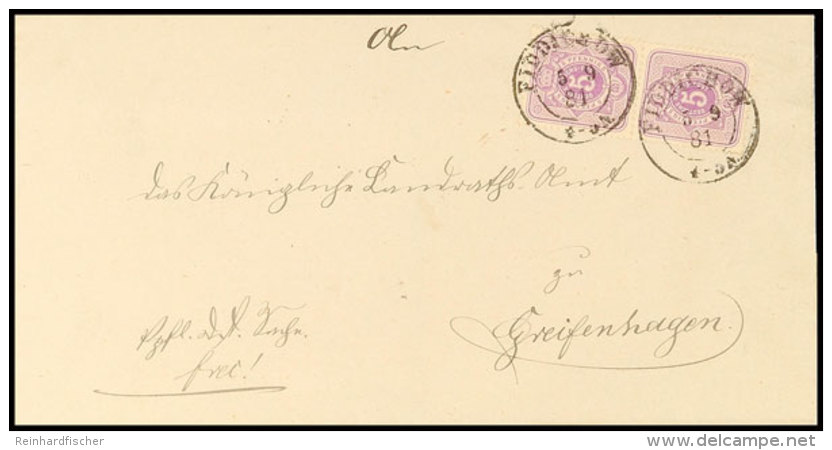 An
FIDDICHOW
5 9
81
4-5N
FIDDICHOW
5 9
81
4-5N
5
5
das Königliche Landraths-Amt
zu
Greifenhagen.
frei!
Reinhardfischer
www.delcampe.net